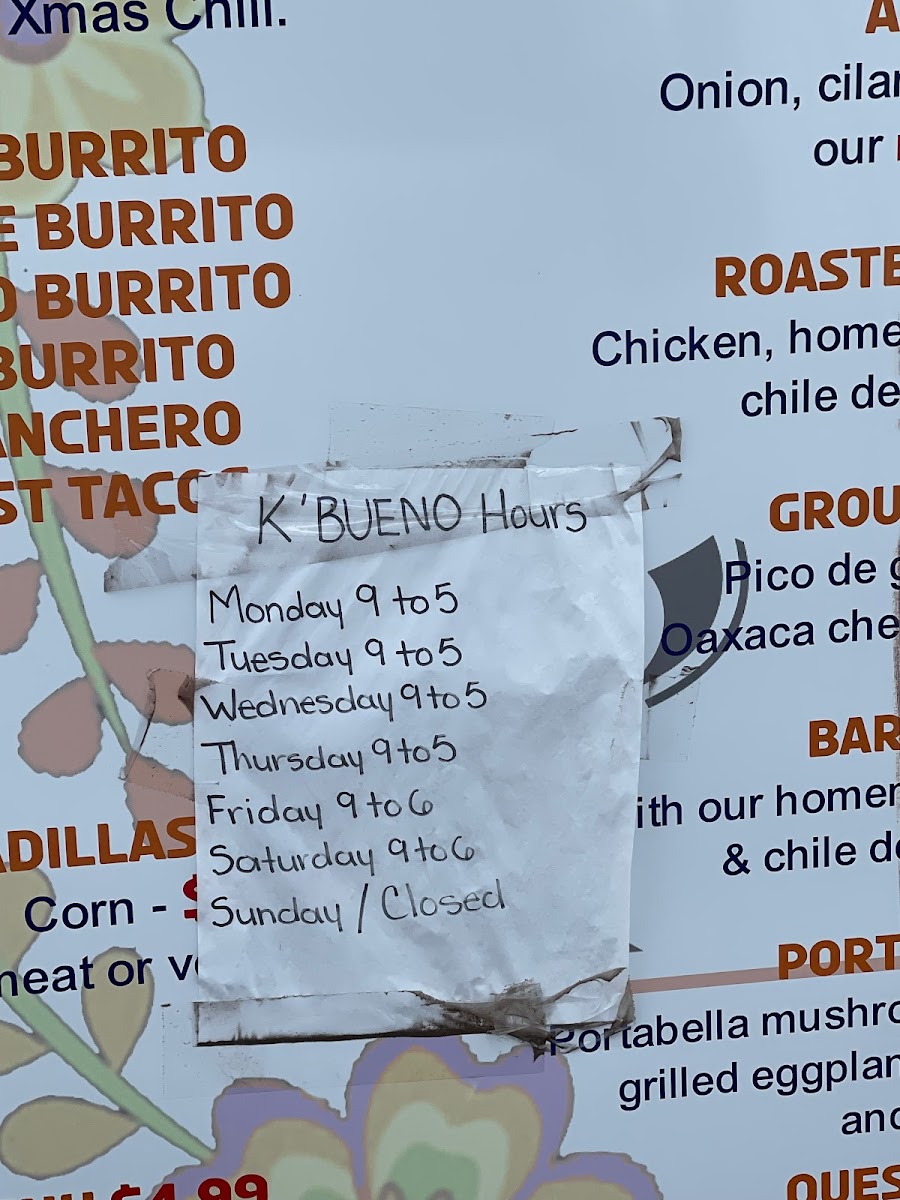 Xmas Chili.
BURRITO
E BURRITO
BURRITO
BURRITO
NCHERO
ST TACOS
ADILLAS
Corn -
meat or
$4.99
K'BUENO Hours
Monday 9 to 5
Tuesday 9 to 5
Wednesday 9 to 5
Thursday 9 to 5
Friday 9 to 6
Saturday 9 to 6
Sunday / Closed
A
Onion, cilan
our
ROASTE
Chicken, home
chile de
GROU
Pico de g
Oaxaca che
BAR
ith our homem
& chile de
PORT
Portabella mushro
grilled eggplan
and
QUES